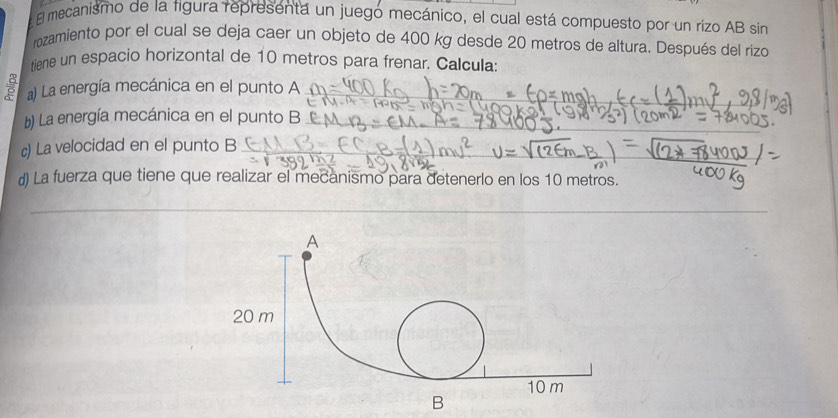 El mecanismo de la figura representa un juego mecánico, el cual está compuesto por un rizo AB sin
rozamiento por el cual se deja caer un objeto de 400 kg desde 20 metros de altura. Después del rizo
tiene un espacio horizontal de 10 metros para frenar. Calcula:
a) La energía mecánica en el punto A m=400 Kg h=20m Ep=mgh, Ec=(1/2)mv², 9.81
= mgh = (400kg) (20m = 78400J.
b) La energía mecánica en el punto B EM-B = EM-A = 78400J.
c) La velocidad en el punto B EM B = EC B = (1/2)mv² v=√((2Em-B)/m) = √((2*78400J)/400Kg) =
= √392 = 19,8
d) La fuerza que tiene que realizar el mecanismo para detenerlo en los 10 metros.
Prolipa
A
20 m
10 m
B